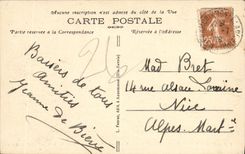 Aucune inscription n'est admise du côté de la Vue
CARTE POSTALE
Partie réservée à la Correspondance
Réservée à l'Adresse
Baisers de tous
Amitiés
Jeanne de Bièvre
Mad Bret
14 rue Alsace Loraine
Nice
Alpes. Marit